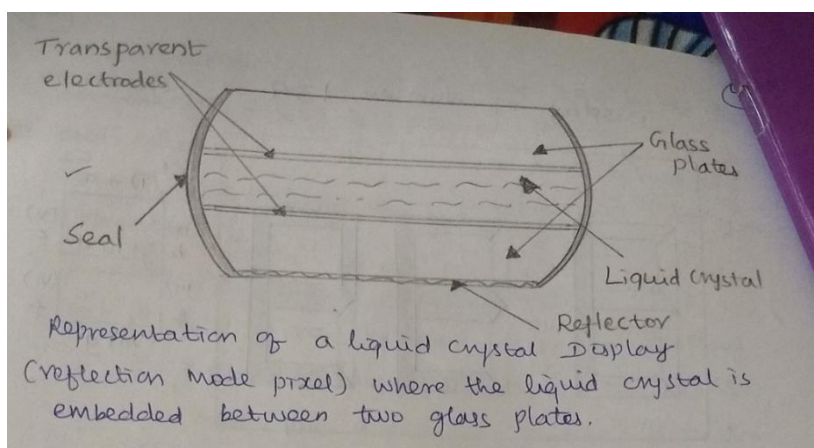 Transparent
electrodes
Glass
plates
Seal
Liquid Crystal
Reflector
Representation of a liquid crystal Display
(reflection mode pixel) where the liquid crystal is
embedded between two glass plates.